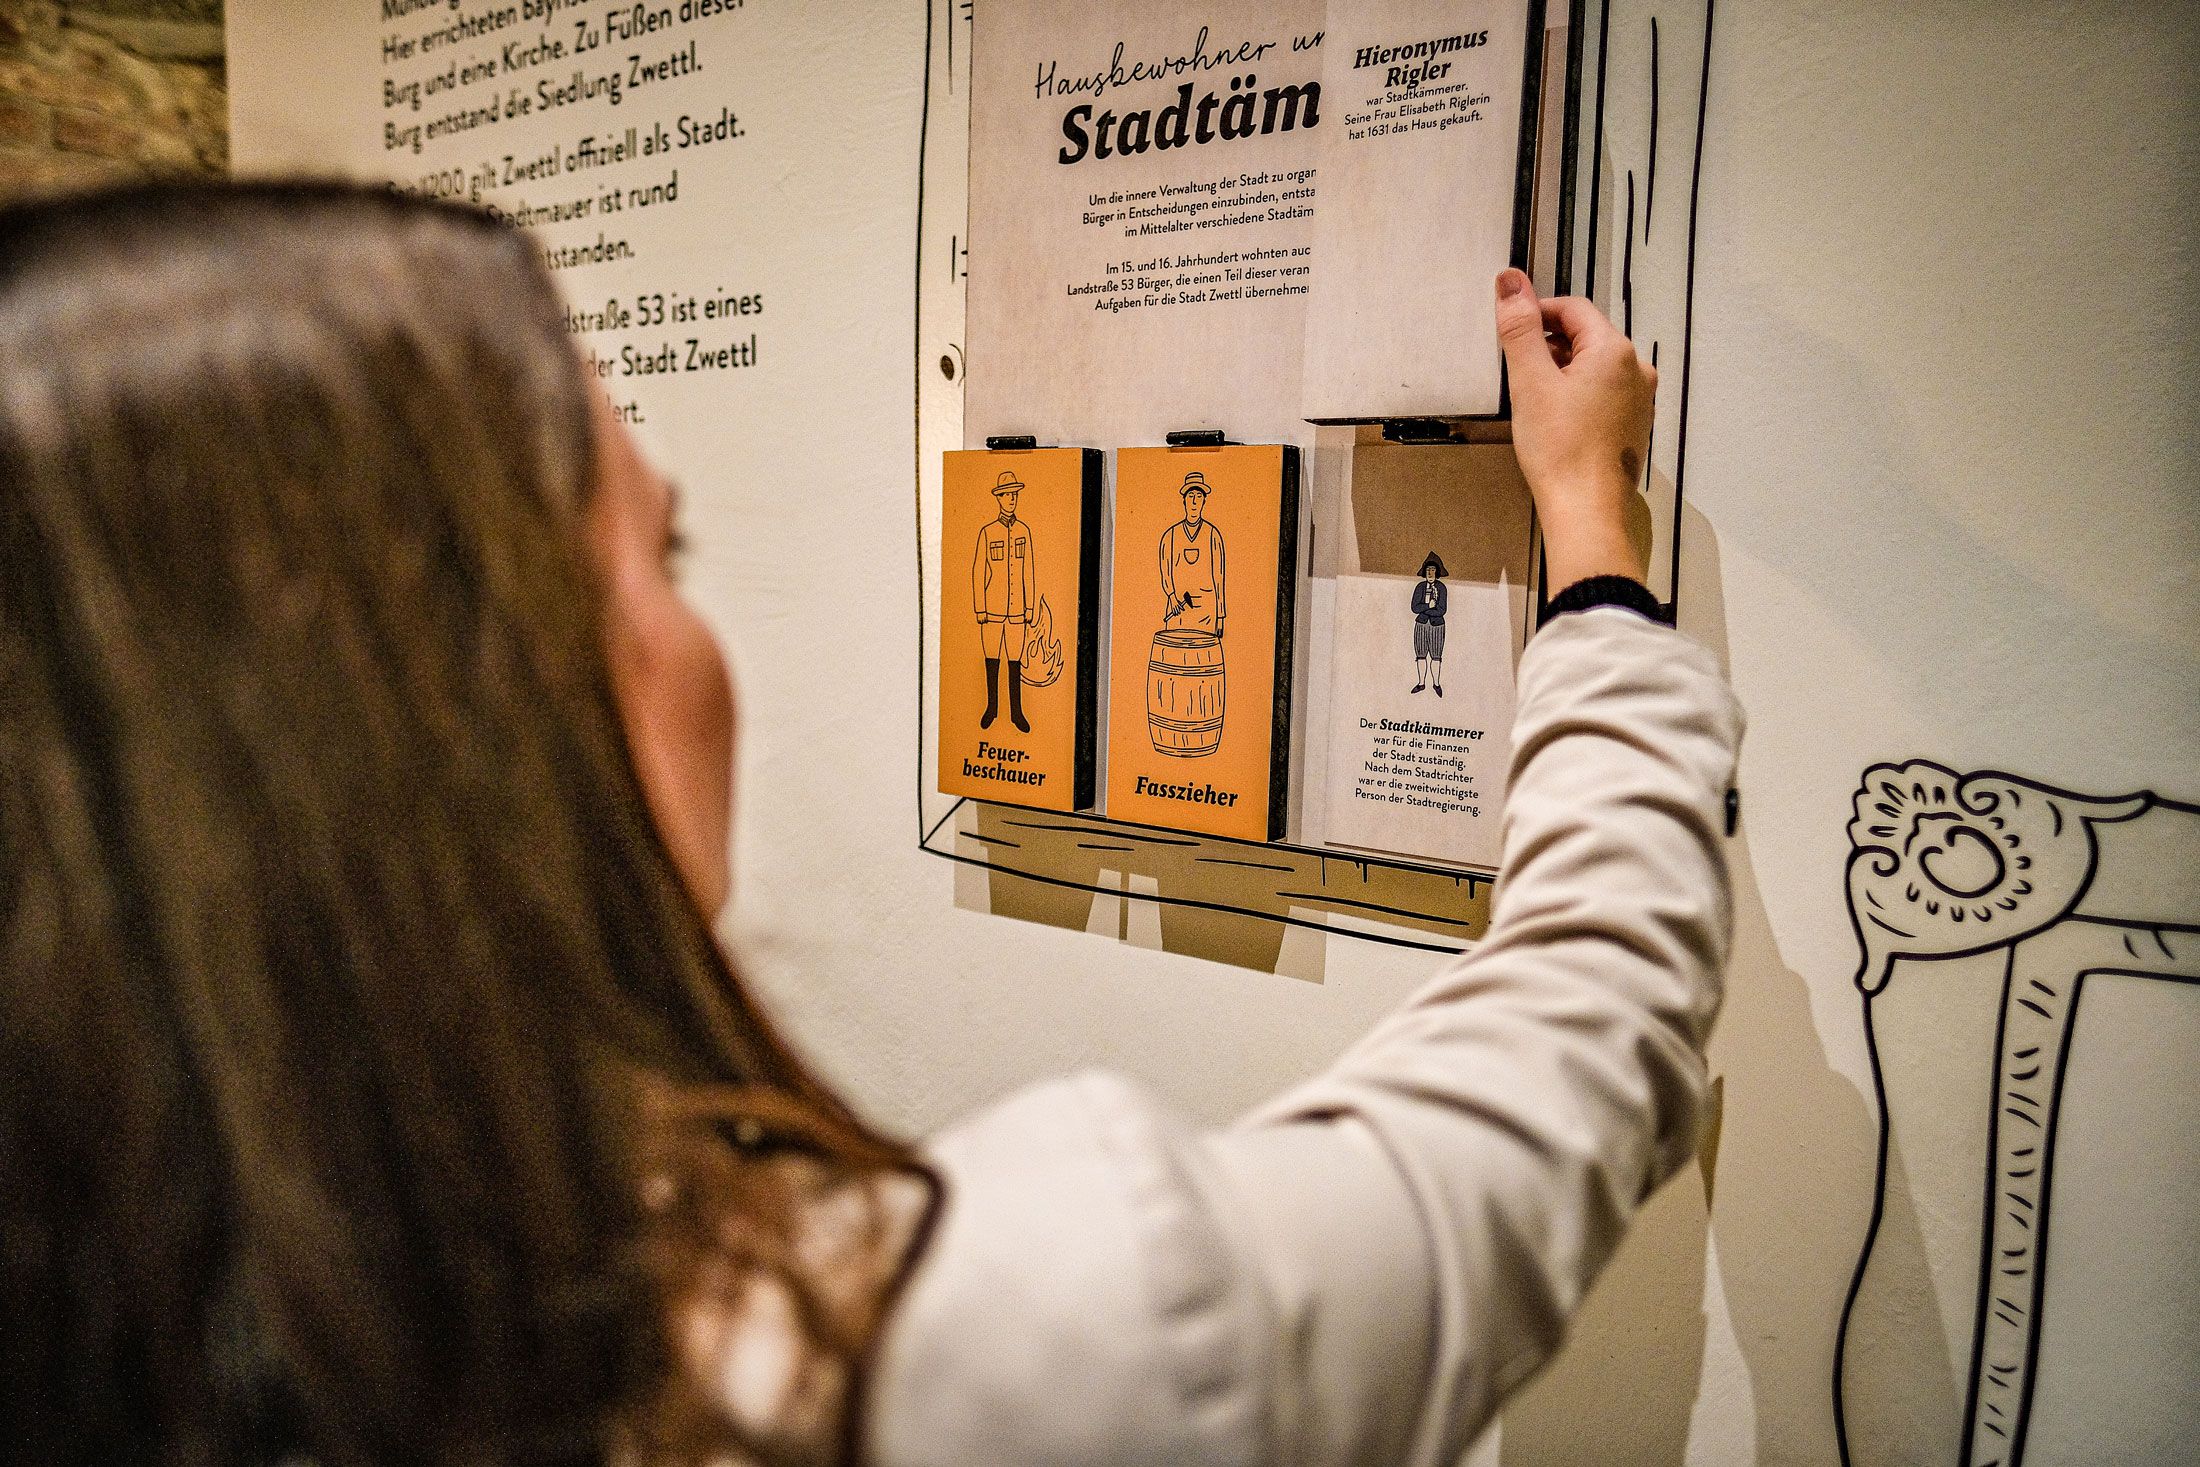 Hier errichteten
Burg und eine Kirche. Zu Füßen dieser
Burg entstand die Siedlung Zwettl.
1200 gilt Zwettl offiziell als Stadt.
Stadtmauer ist rund
tstanden.
dstraße 53 ist eines
der Stadt Zwettl
ert.
Hausbewohner un
Stadtäm
Um die innere Verwaltung der Stadt zu organ
Bürger in Entscheidungen einzubinden, entsta
im Mittelalter verschiedene Stadtäm
Im 15. und 16. Jahrhundert wohnten auc
Landstraße 53 Bürger, die einen Teil dieser veran
Aufgaben für die Stadt Zwettl übernehmen
Hieronymus
Rigler
war Stadtkämmerer.
Seine Frau Elisabeth Riglerin
hat 1631 das Haus gekauft.
Feuer-
beschauer
Fasszieher
Der Stadtkämmerer
war für die Finanzen
der Stadt zuständig.
Nach dem Stadtrichter
war er die zweitwichtigste
Person der Stadtregierung.